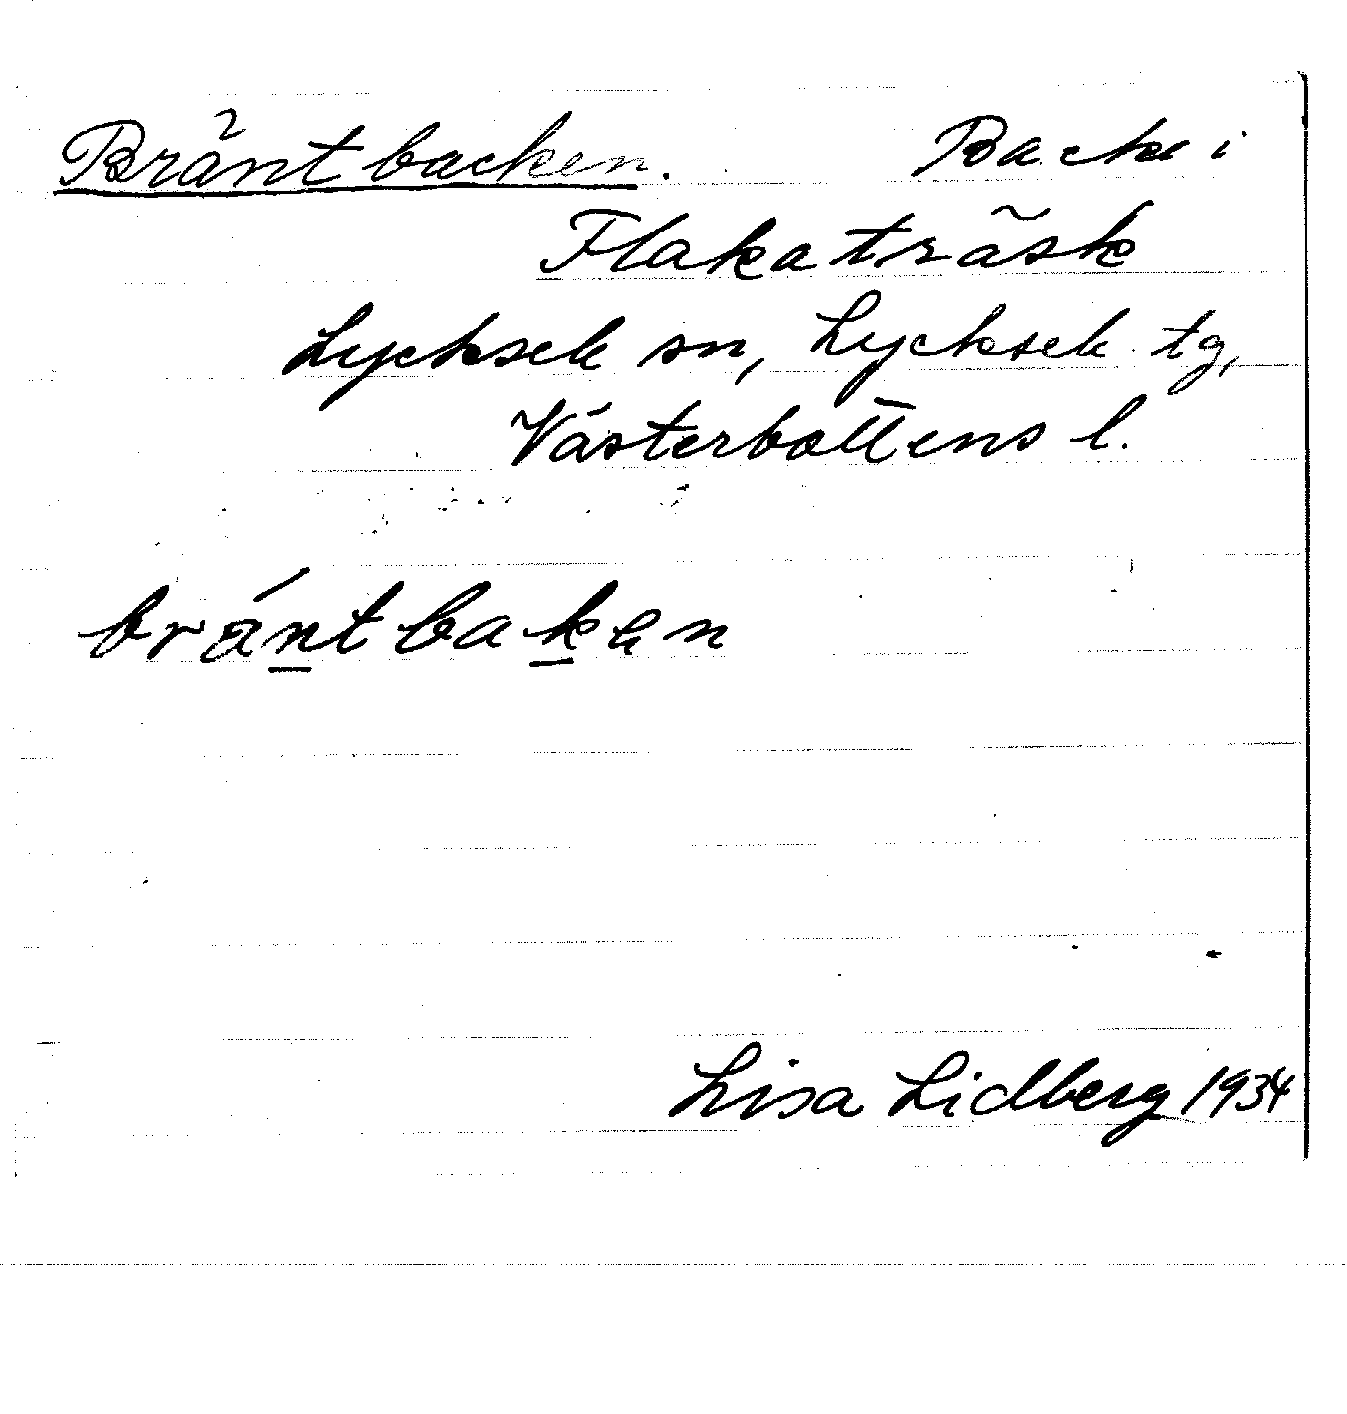 Bräntbacken. Backe i
Flakaträsk
Lycksele sn, Lycksele tg,
Västerbottens l.
bräntbakən
Lisa Lidberg 1934